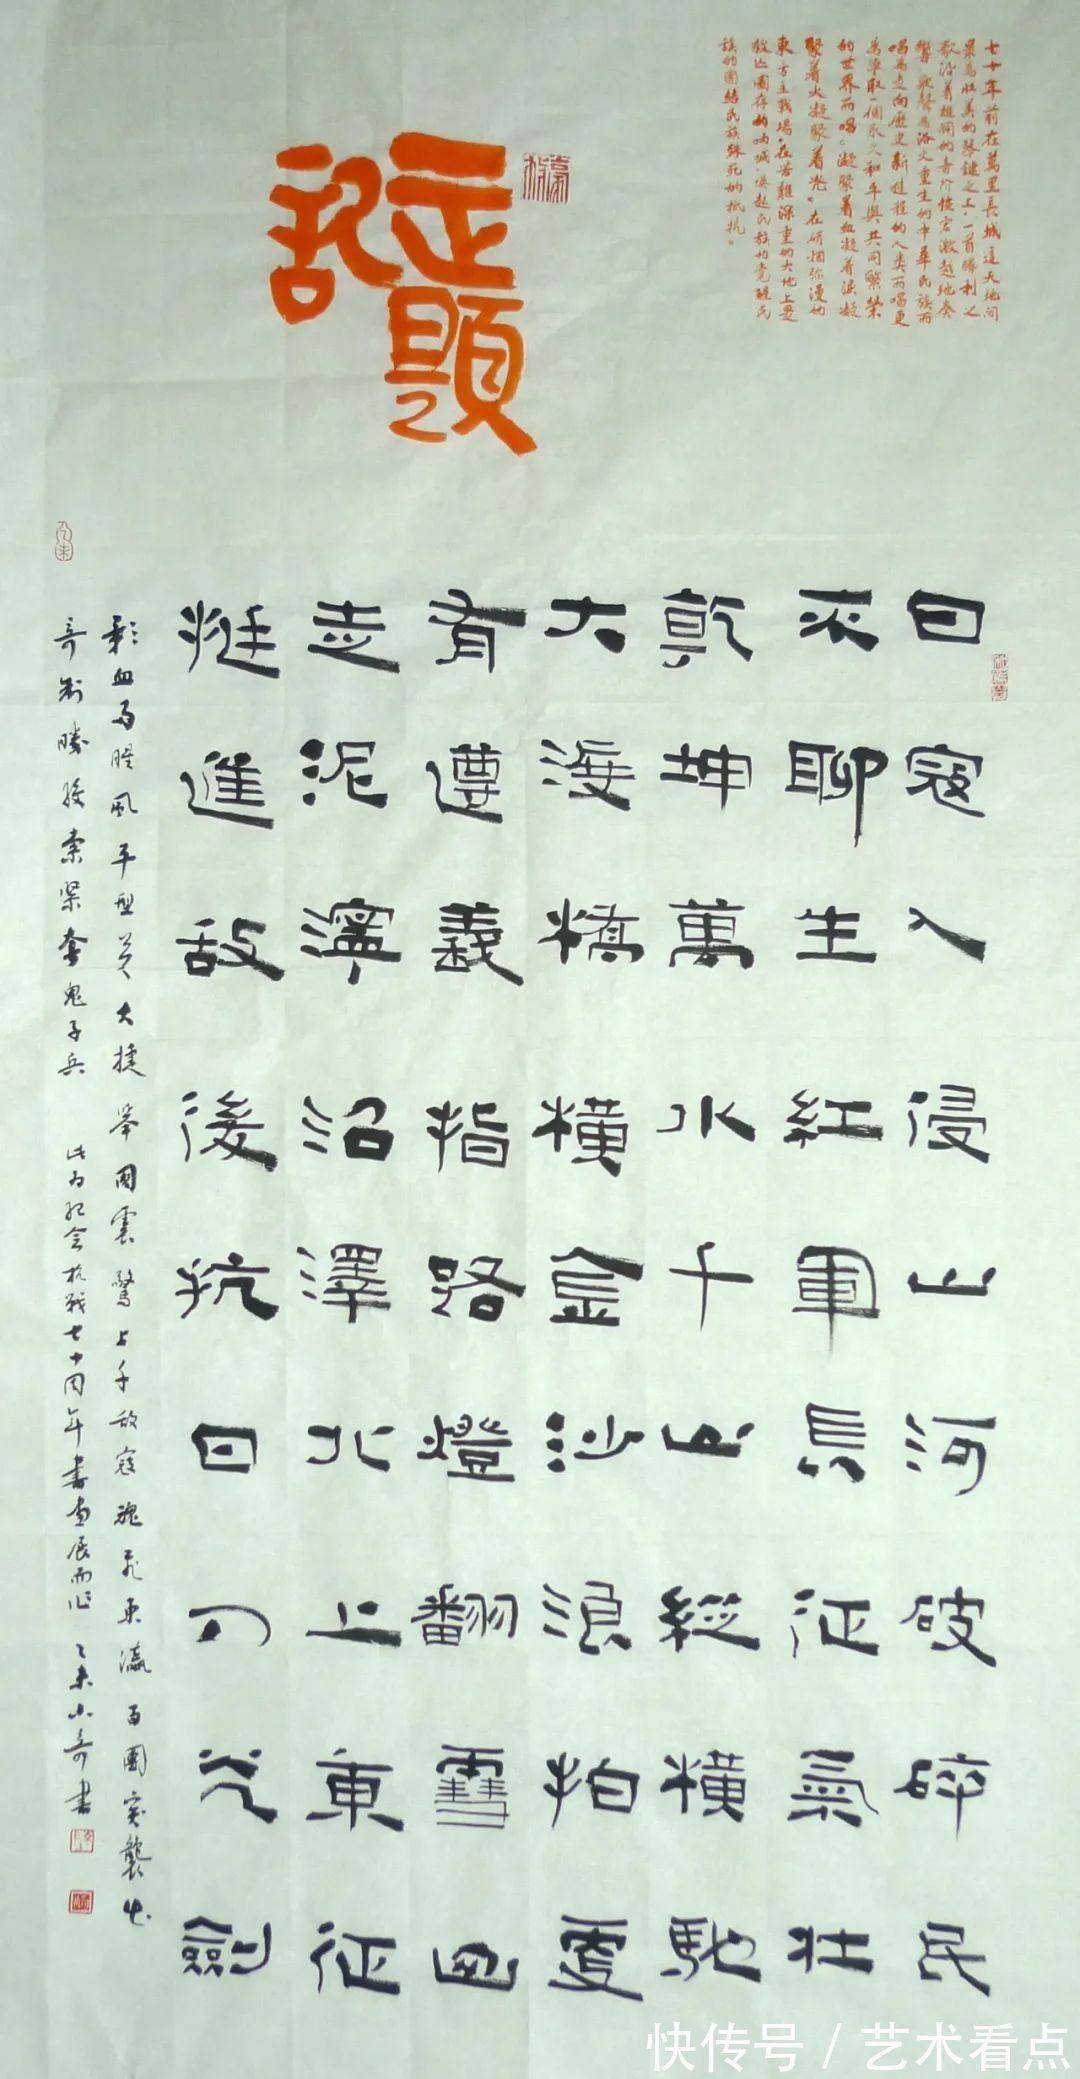 七十年前在萬里長城這天地間
最爲壯美的琴鍵之上,一首勝利之
歌沿着雄闊的音階慷宏激越地奏
響。歌聲爲浴火重生的中華民族而
唱爲走向歷史新進程的人类而唱更
爲爭取一個永久和平與共同繁榮
的世界而唱。凝聚着血凝着淚凝
聚着火凝聚着光。在硝烟弥漫的
東方主戰場。在苦難深重的大地上是
救亡圖存的吶喊,喚起民族的覺醒民
族的團結民族殊死的抵抗。
題記
日寇入侵山河破碎民
不聊生紅軍長征氣壯
乾坤萬水千山縱橫馳
大渡橋橫金沙浪拍更
有遵義指路燈翻雪山
走泥濘沼澤北上東征
挺進敵後抗日刀光劍
影血雨腥風平型关大捷舉國震驚上千敵寇魂飛東瀛百團突襲出
奇制勝絞索緊套鬼子兵 此为紀念抗戰七十周年書画展而作 乙未小奇書
快传号/艺术看点